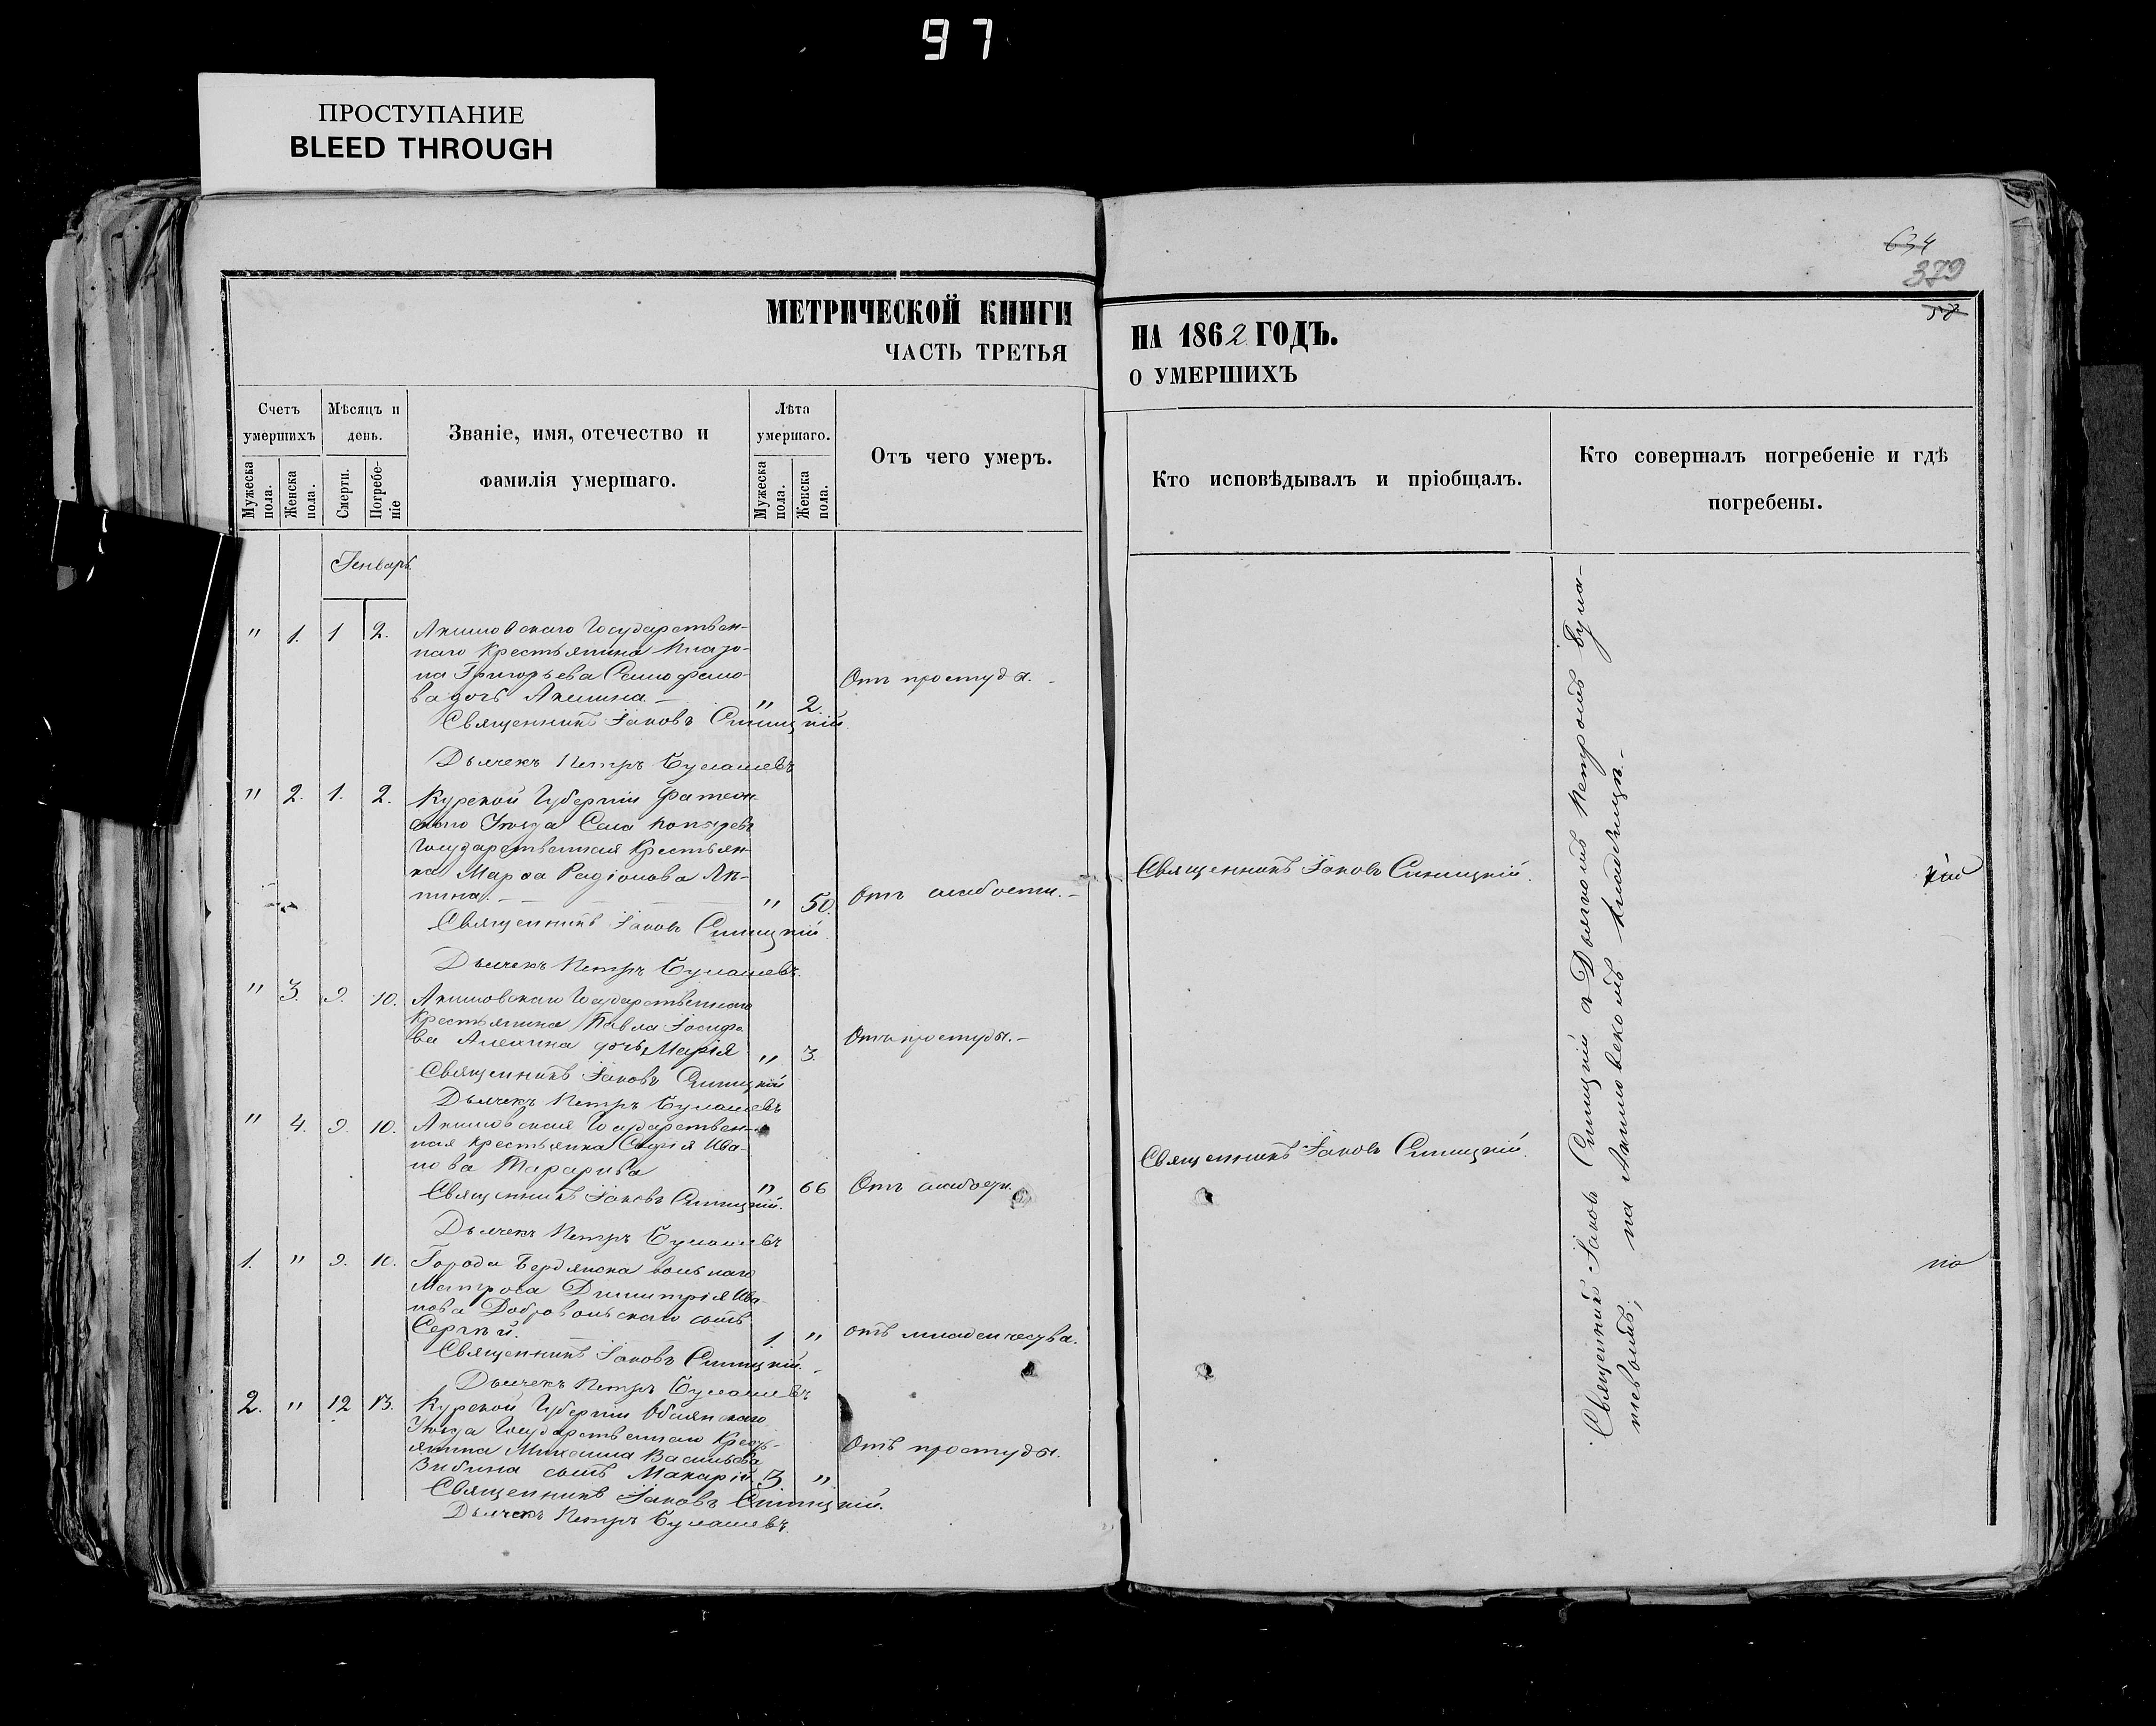 97
ПРОСТУПАНИЕ
BLEED THROUGH
634
379
58
МЕТРИЧЕСКОЙ КНИГИ
НА 1862 ГОДЪ.
ЧАСТЬ ТРЕТЬЯ
О УМЕРШИХЪ
Счетъ умершихъ
Мѣсяцъ и день.
Званіе, имя, отечество и фамилія умершаго.
Лѣта умершаго.
Отъ чего умеръ.
Кто исповѣдывалъ и пріобщалъ.
Кто совершалъ погребеніе и гдѣ погребены.
Мужеска пола.
Женска пола.
Смерти.
Погребеніе
Мужеска пола.
Женска пола.
Генварь
" 1. 1 2. Акимовскаго Государствен-
наго Крестьянина
на Григорьева
ва дочь Акилина " 2. Отъ простуды.
Священникъ Іаковъ Синицкій
Дьячекъ Петръ Булашевъ
" 2. 1. 2. Курской Губерніи Фатеж-
скаго Уезда Села
Государственная Крестьян-
ка Марѳа Радіонова
пина. " 50. Отъ слабости.
Священникъ Іаковъ Синицкій.
Священникъ Іаковъ Синицкій
Дьячекъ Петръ Булашевъ.
" 3. 9. 10. Акимовскаго Государственнаго
Крестьянина Павла Іосифо
ва Алехина дочь Марія " 3. Отъ простуды.
Священникъ Іаковъ Синицкій
Дьячекъ Петръ Булашевъ
" 4. 9. 10. Акимовская Государствен-
ная Крестьянка Софія Ива-
нова " 66 Отъ слабости.
Священникъ Іаковъ Синицкій.
Священникъ Іаковъ Синицкій.
Дьячекъ Петръ Булашевъ
1. " 9. 10. Города Бердянска вольнаго
Матроса Димитрія Ива-
нова Добровольскаго сынъ
Сергѣй. 1. " отъ младенчества.
Священникъ Іаковъ Синицкій.
Дьячекъ Петръ Булашевъ
2. " 12 13. Курской Губерніи Обоянскаго
Уезда Государственнаго Крест-
янина Михаила Васильева
Зибина сынъ Макарій 3 " Отъ простуды.
Священникъ Іаковъ Синицкій.
Дьячекъ Петръ Булашевъ.
Священникъ Іаковъ Синицкій съ Дьячкомъ Петромъ Була-
шевымъ; на Акимовскомъ кладбищѣ.
по